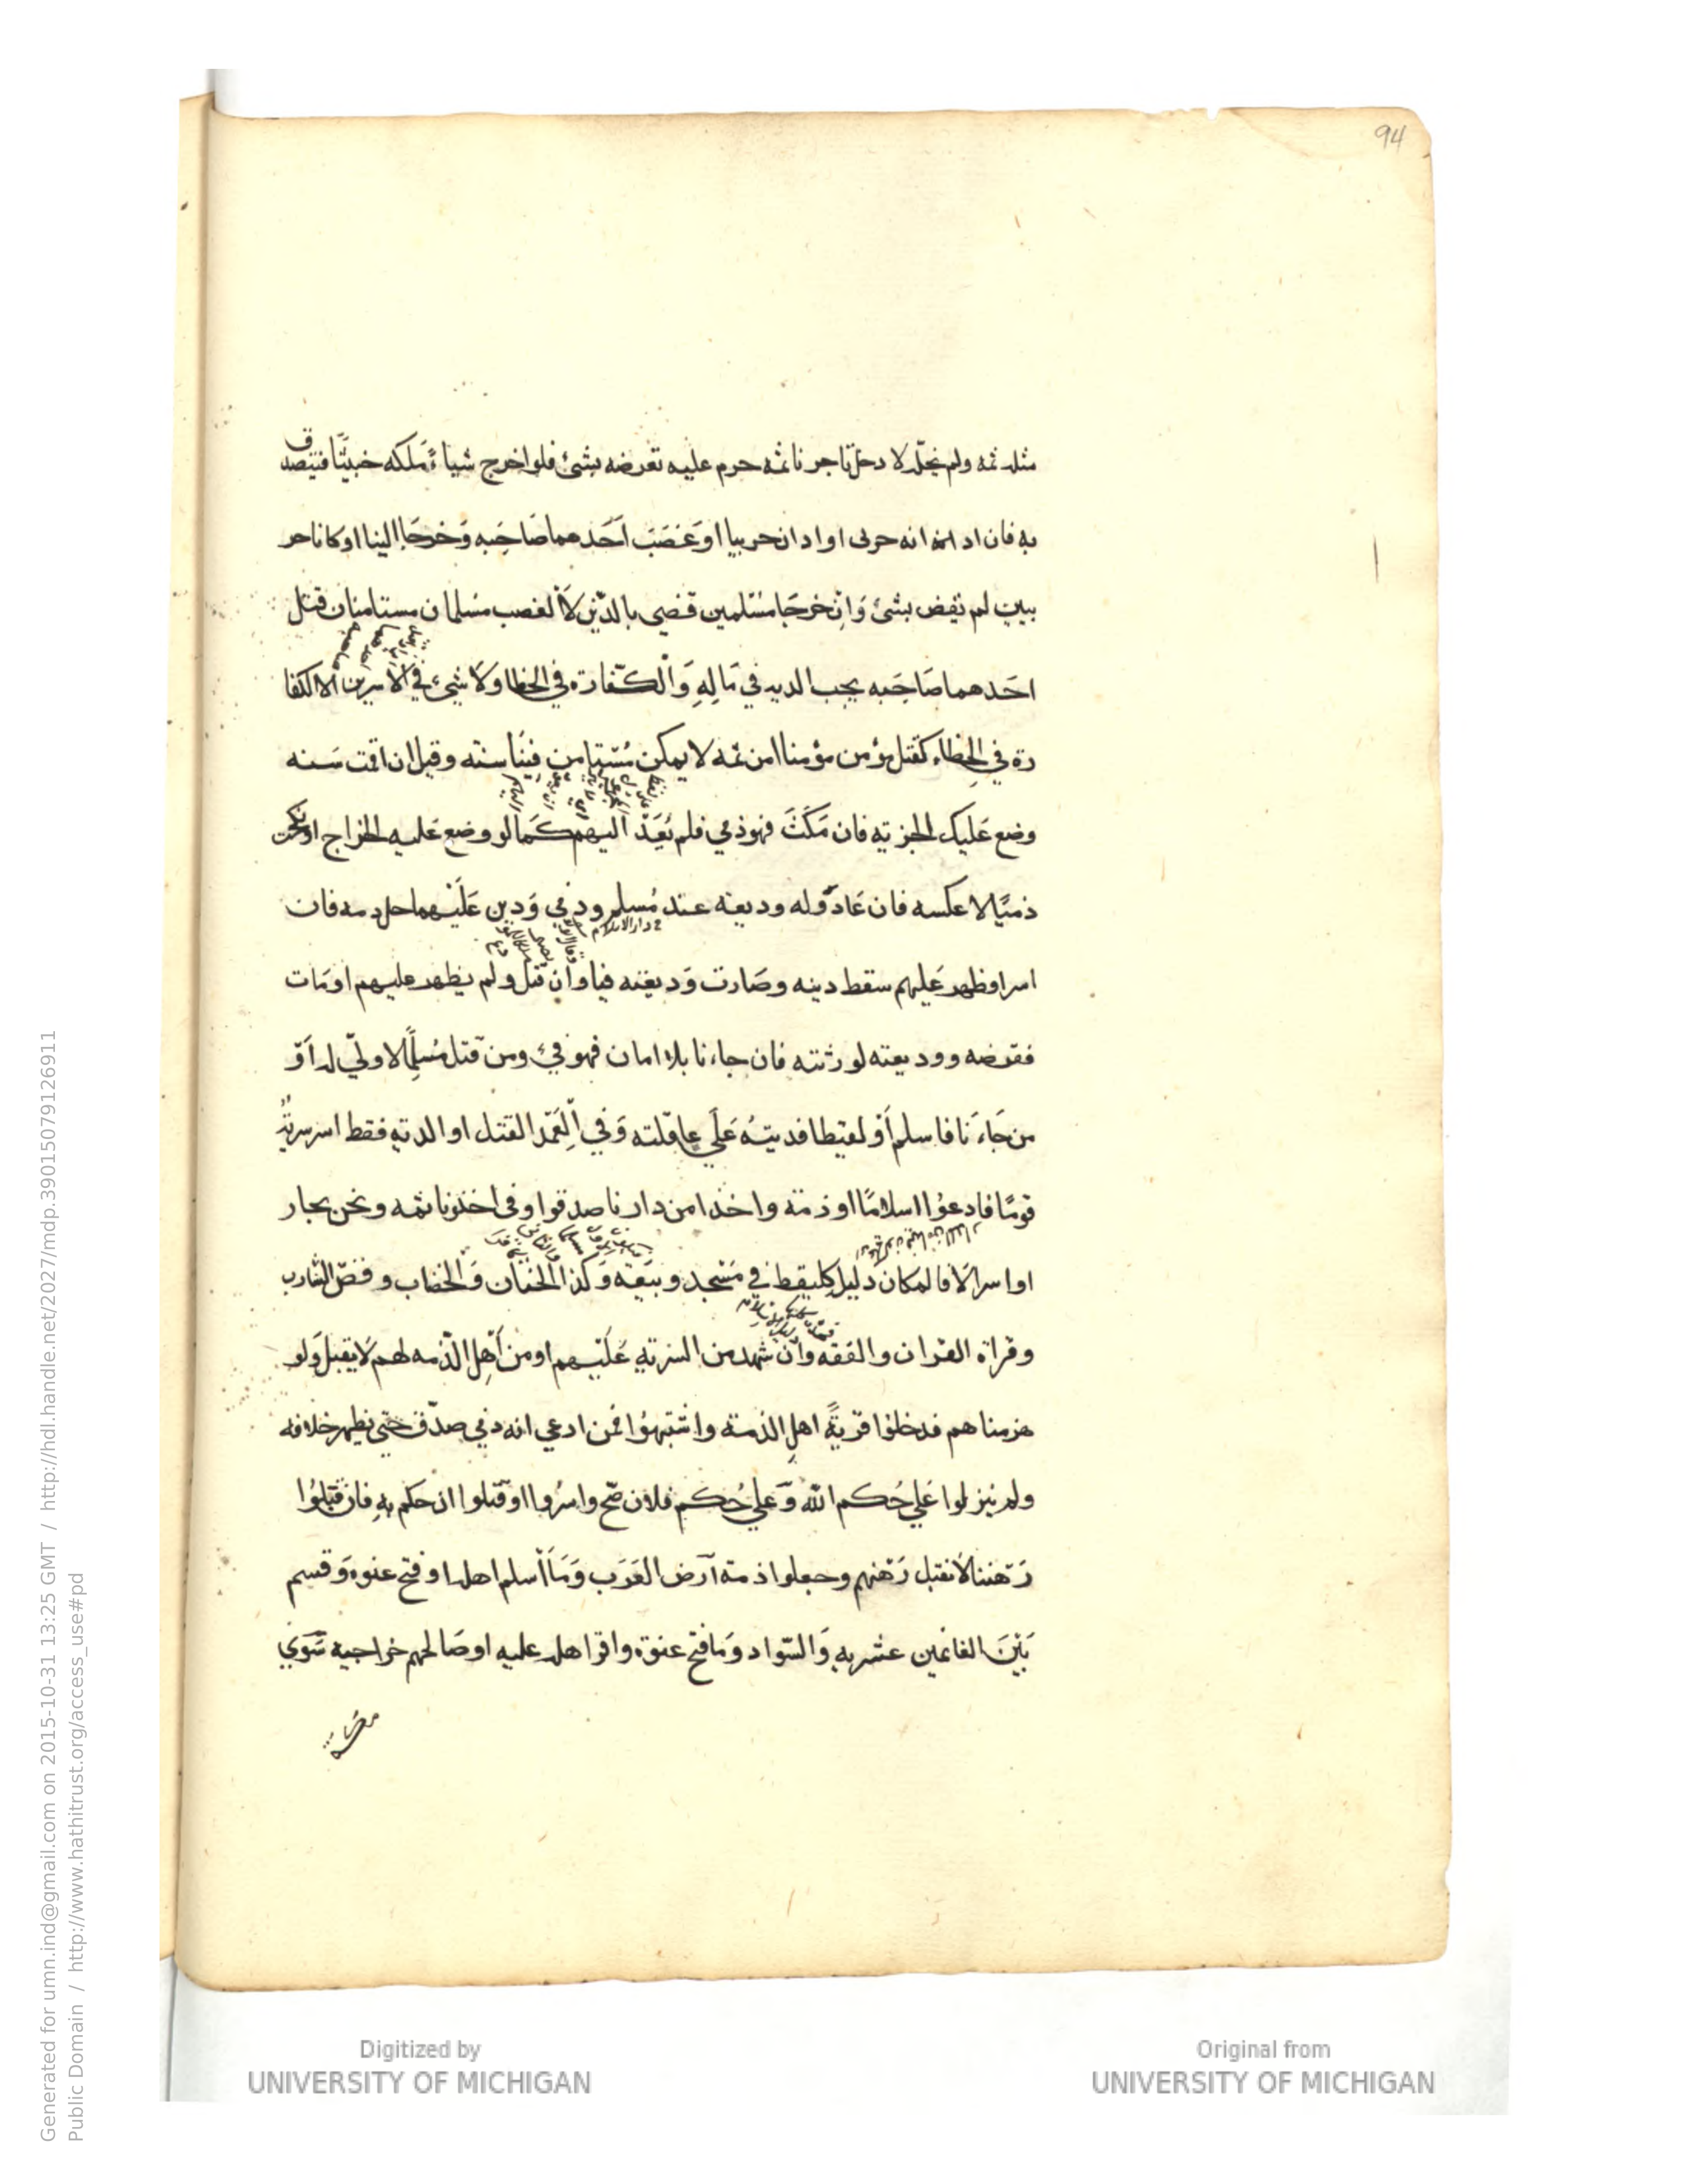 94
مثله ثمه ولم نجله لا دخل تاجرنا ثمه حرم عليه تعرضه بشئ فلو اخرج شياءً ملكه خبيثا فيتصدق
به فان ادانه حربى او ادان حربيا او غصب احدهما صاحبه وخرجا الينا او كانا حر
بيين لم نقض بشئ وان خرجا مسلمين قضي بالدين لا الغصب مسلمان مستامنان قتل
احدهما صاحبه يجب الديه في ماله والكفارة في الخطا ولا شئ في الاسيرين الا الكفا
رة في الخطاء كقتل مؤمن مؤمنا امن ثمه لا يمكن مستامن فينا سنته وقيل ان اقمت سنه
وضع عليك الجزيه فان مكث فهو ذمي فلم يعد اليهم كما لو وضع عليه الخراج او نكحت
ذميا لا عكسه فان عاد وله وديعه عند مسلم وذمي ودين عليهما حل دمه فان
اسر او ظهر عليهم سقط دينه وصارت وديعته فيا وان قتل ولم يظهر عليهم او مات
فقرضه ووديعته لورثته فان جاءنا بلا امان فهو فئ ومن قتل مسلما لا ولي له او
من جاءنا فاسلم او لقيطا فديته على عاقلته وفي العمد القتل او الديه فقط اسر سرية
قوما فادعوا اسلاما او ذمة واخذا من دارنا صدقوا وفى اخذونا ثمه ونحن بحار
او اسرا لا فالمكان دليل كلقيط في مسجد وبيعه وكذا الختان والخضاب وقص الشارب
وقراة القران والفقه وان شهد من السريه عليهم او من اهل الذمه لهم لا يقبل ولو
هزمناهم فدخلوا قرية اهل الذمة واشتبهوا فمن ادعي انه ذمي صدق حتى يظهر خلافه
ولم ينزلوا علي حكم الله وعلي حكم فلان صح واسروا او قتلوا ان حكم به فان قتلوا
رهننا لا نقتل رهنهم وجعلوا ذمة ارض العرب وما اسلم اهله او فتح عنوه وقسم
بين الغانمين عشريه والسواد وما فتح عنوة واقر اهله عليه او صالحهم خراجيه سوي
Digitized by
UNIVERSITY OF MICHIGAN
Original from
UNIVERSITY OF MICHIGAN
Generated for umn.ind@gmail.com on 2015-10-31 13:25 GMT / http://hdl.handle.net/2027/mdp.39015079126911
Public Domain / http://www.hathitrust.org/access_use#pd